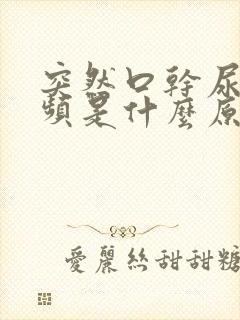 突然口幹尿
頻是什麼原
愛麗絲甜甜糖